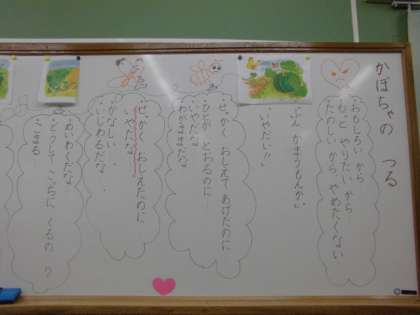 かぼちゃの つる
・おもしろい から
・もっと やりたい から
・たのしい から やめたくない
・ふん かまうもんか
・いやだい!!
・せっかく おしえて あげたのに
・ひとが とおるのに
・いやだな
・わがままだな
・せっかく おしえたのに
・いやだな
・かなしい..
・いじわるだな..
・めいわくだな
・どうして こっちに くるの?
・こまる